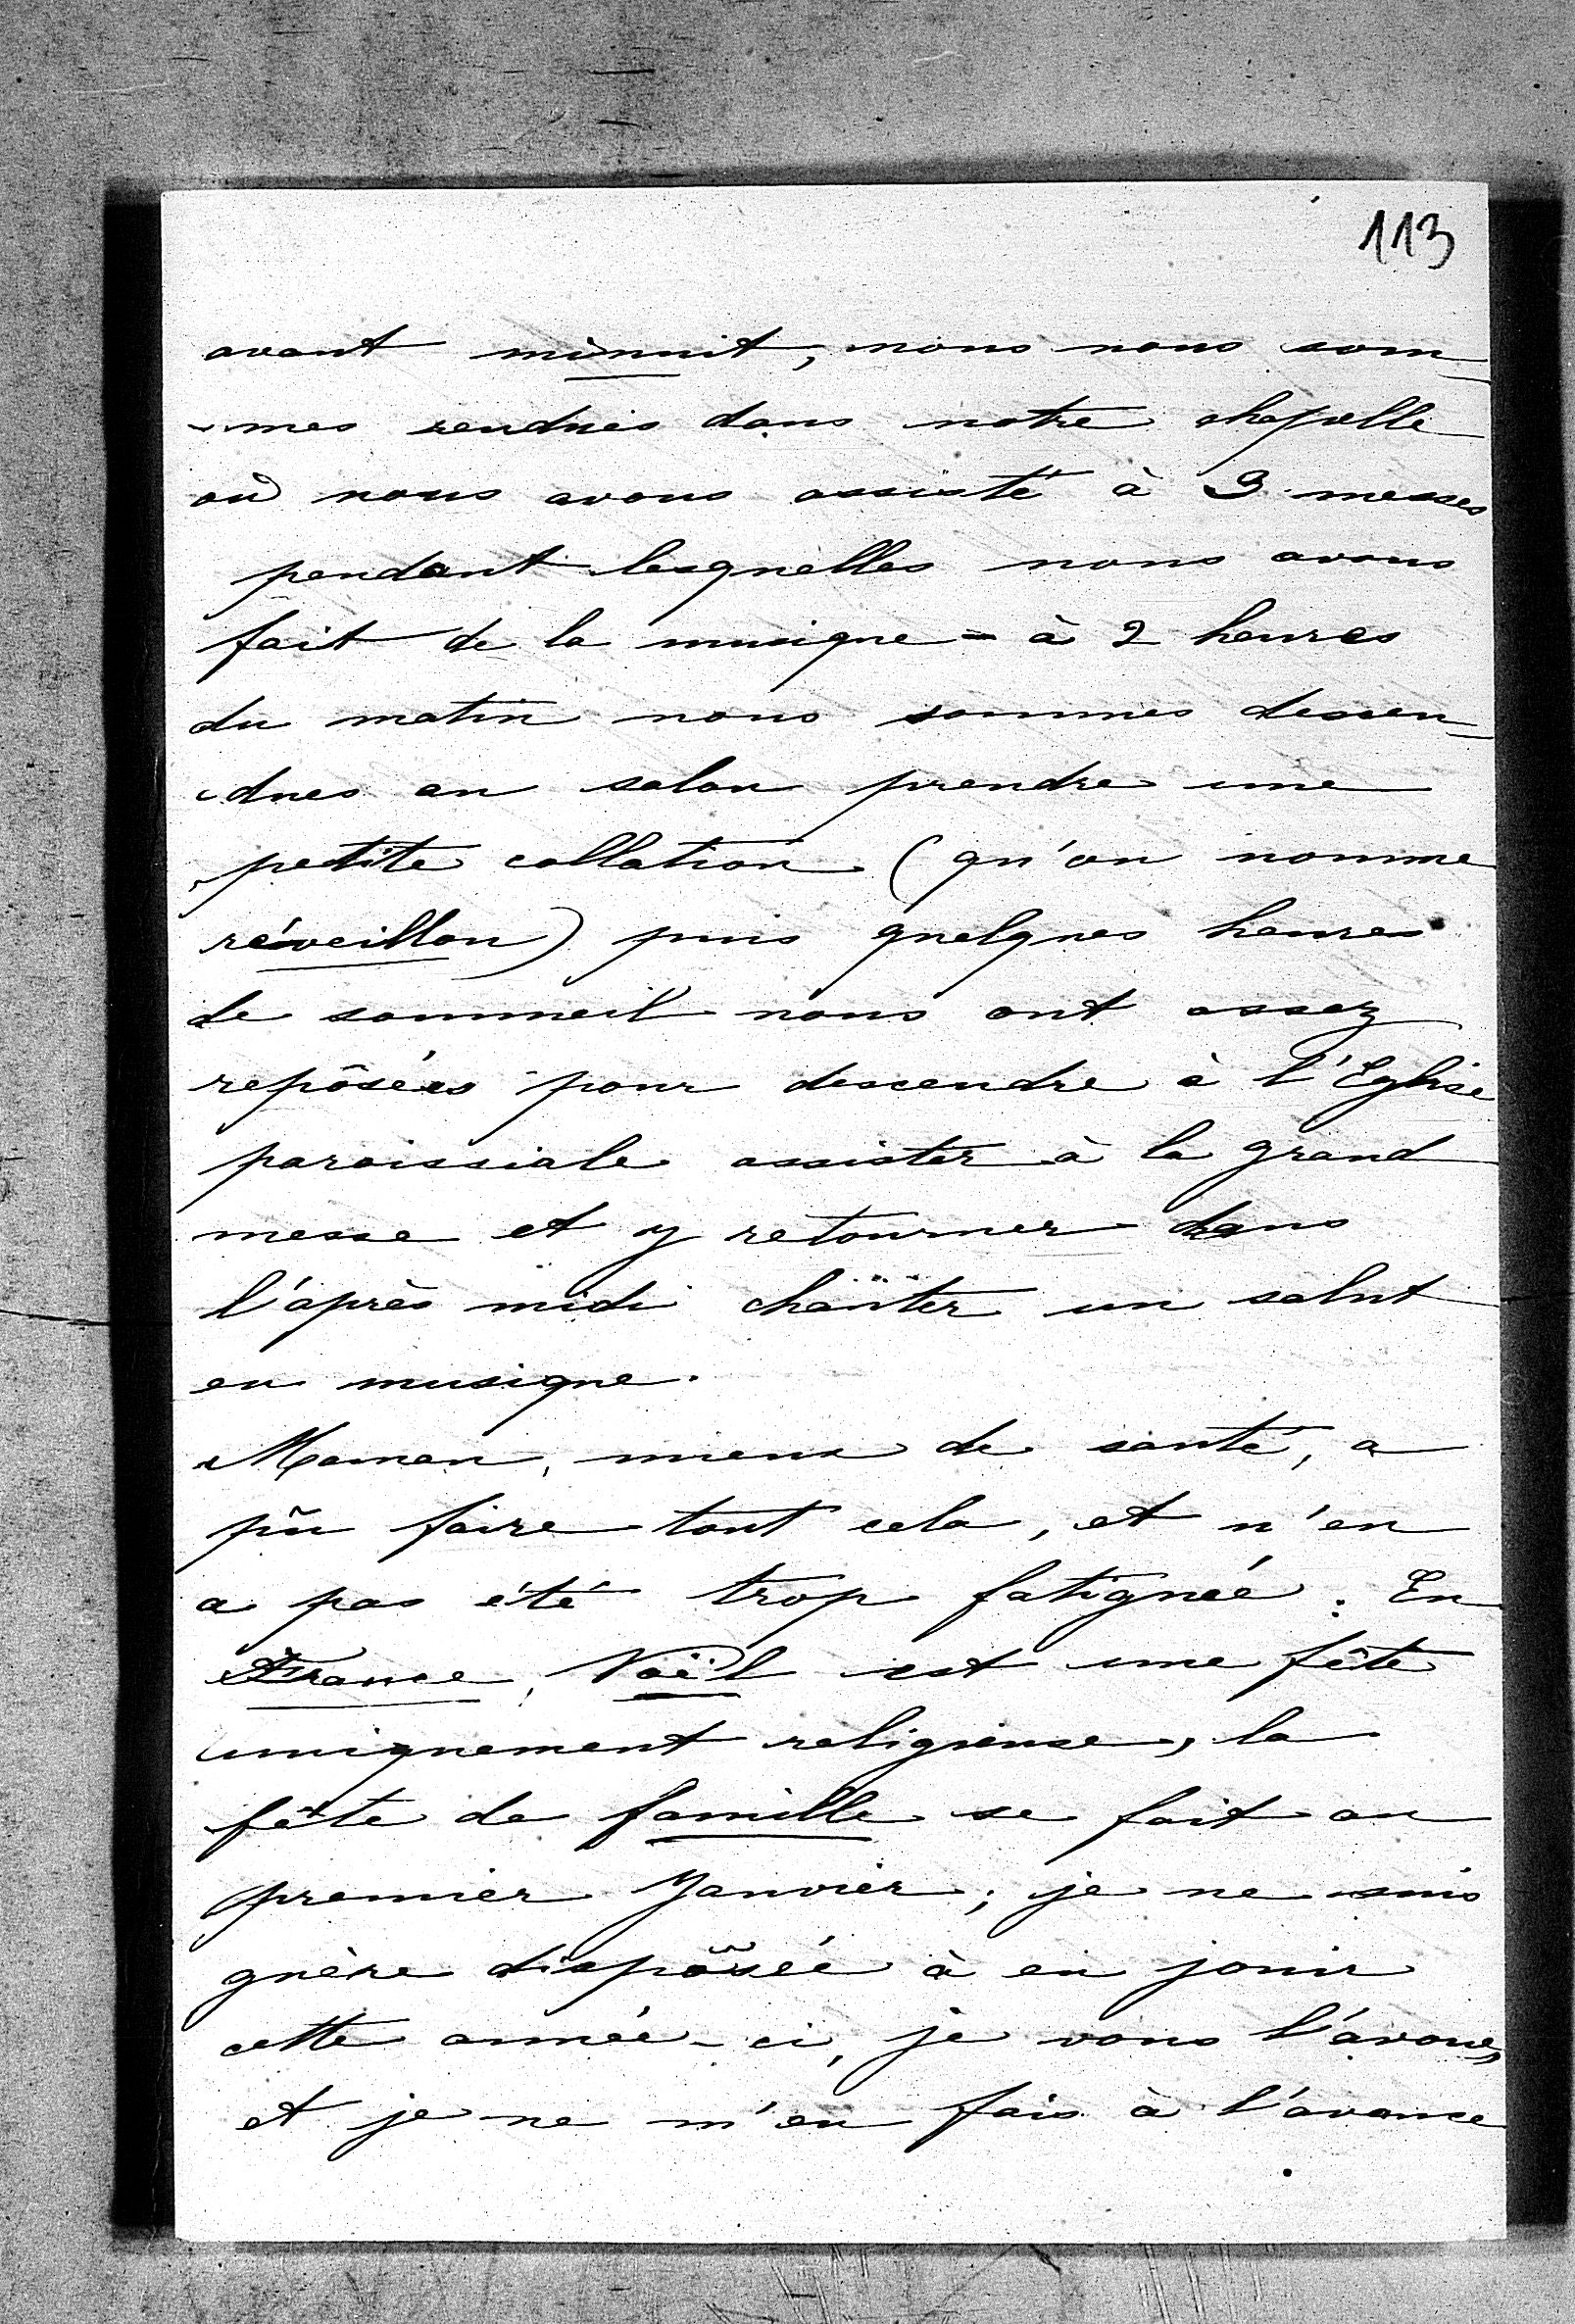 113
avant minuit, nous nous som-
-mes rendues dans notre chapelle
où nous avons assisté à 3 messes
pendant lesquelles nous avons
fait de la musique - à 2 heures
du matin nous sommes descen-
-dues au salon prendre une
petite collation (qu'on nomme
réveillon) puis quelques heures
de sommeil nous ont assez
repôsées pour descendre à l'Eglise
paroissiale assister à la grand
messe et y retourner dans
l'après midi chanter un salut
en musique.
Maman, mieux de santé, a
pû faire tout cela, et n'en
a pas été trop fatiguée. En
France, Noël est une fête
uniquement religieuse, la
fête de famille se fait au
premier Janvier; je ne suis
guère dispôsée à en jouir
cette année-ci, je vous l'avoue,
et je ne m'en fais à l'avance